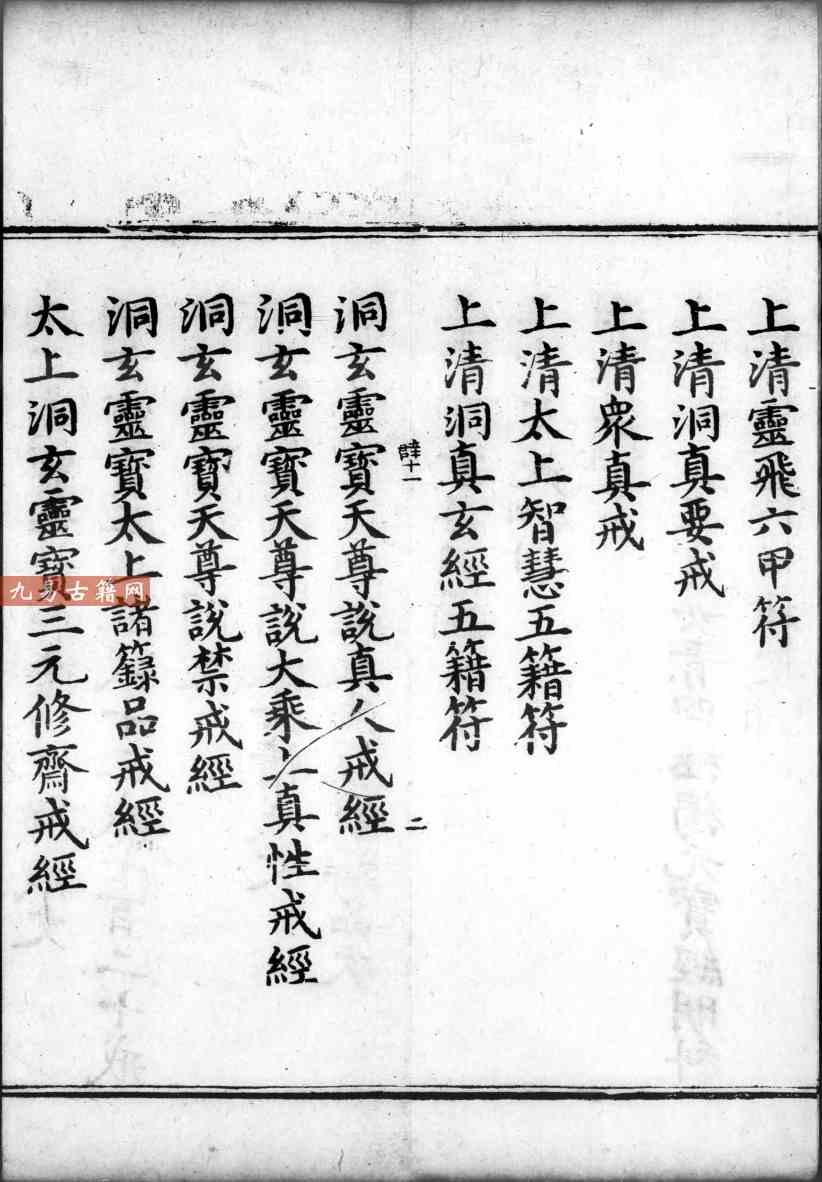 上清靈飛六甲符
上清洞真要戒
上清衆真戒
上清太上智慧五籍符
上清洞真玄經五籍符
薛十一
二
洞玄靈寶天尊說真人戒經
洞玄靈寶天尊說大乘上真性戒經
洞玄靈寶天尊說禁戒經
洞玄靈寶太上諸籙品戒經
太上洞玄靈寶三元修齋戒經
九易古籍网